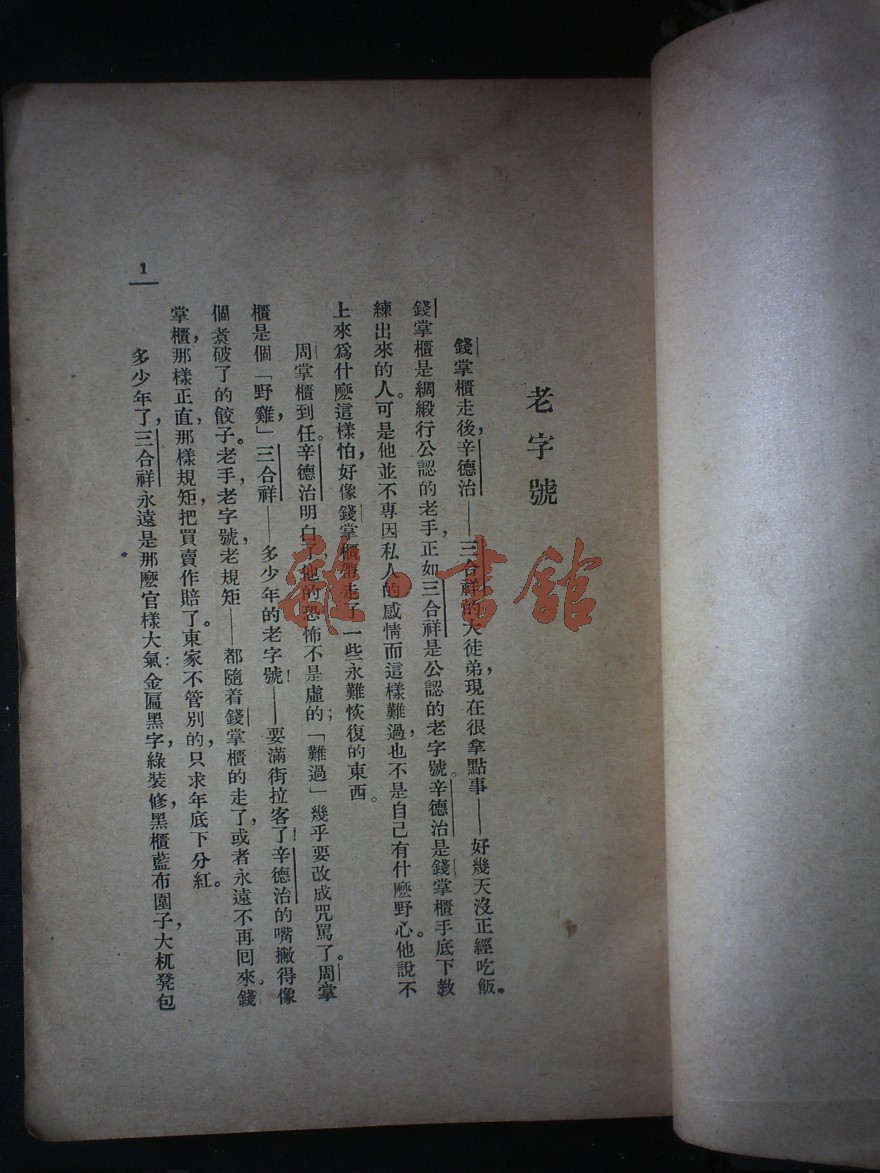 老字號
錢掌櫃走後，辛德治——三合祥的大徒弟，現在很拿點事——好幾天沒正經吃飯。
錢掌櫃是綢緞行公認的老手，正如三合祥是公認的老字號。辛德治是錢掌櫃手底下教
練出來的人。可是他並不專因私人的感情而這樣難過，也不是自己有什麼野心。他說不
上來爲什麼這樣怕，好像錢掌櫃帶走了一些永難恢復的東西。
周掌櫃到任。辛德治明白了，他的恐怖不是虛的；「難過」幾乎要改成咒罵了。周掌
櫃是個「野雞」，三合祥——多少年的老字號！——要滿街拉客了！辛德治的嘴撇得像
個煮破了的餃子。老手，老字號，老規矩——都隨着錢掌櫃的走了，或者永遠不再回來。錢
掌櫃，那樣正直，那樣規矩，把買賣作賠了。東家不管別的，只求年底下分紅。
多少年了，三合祥永遠是那麼官樣大氣：金匾黑字，綠裝修，黑櫃藍布圍子，大杌凳包
1
雜·書館